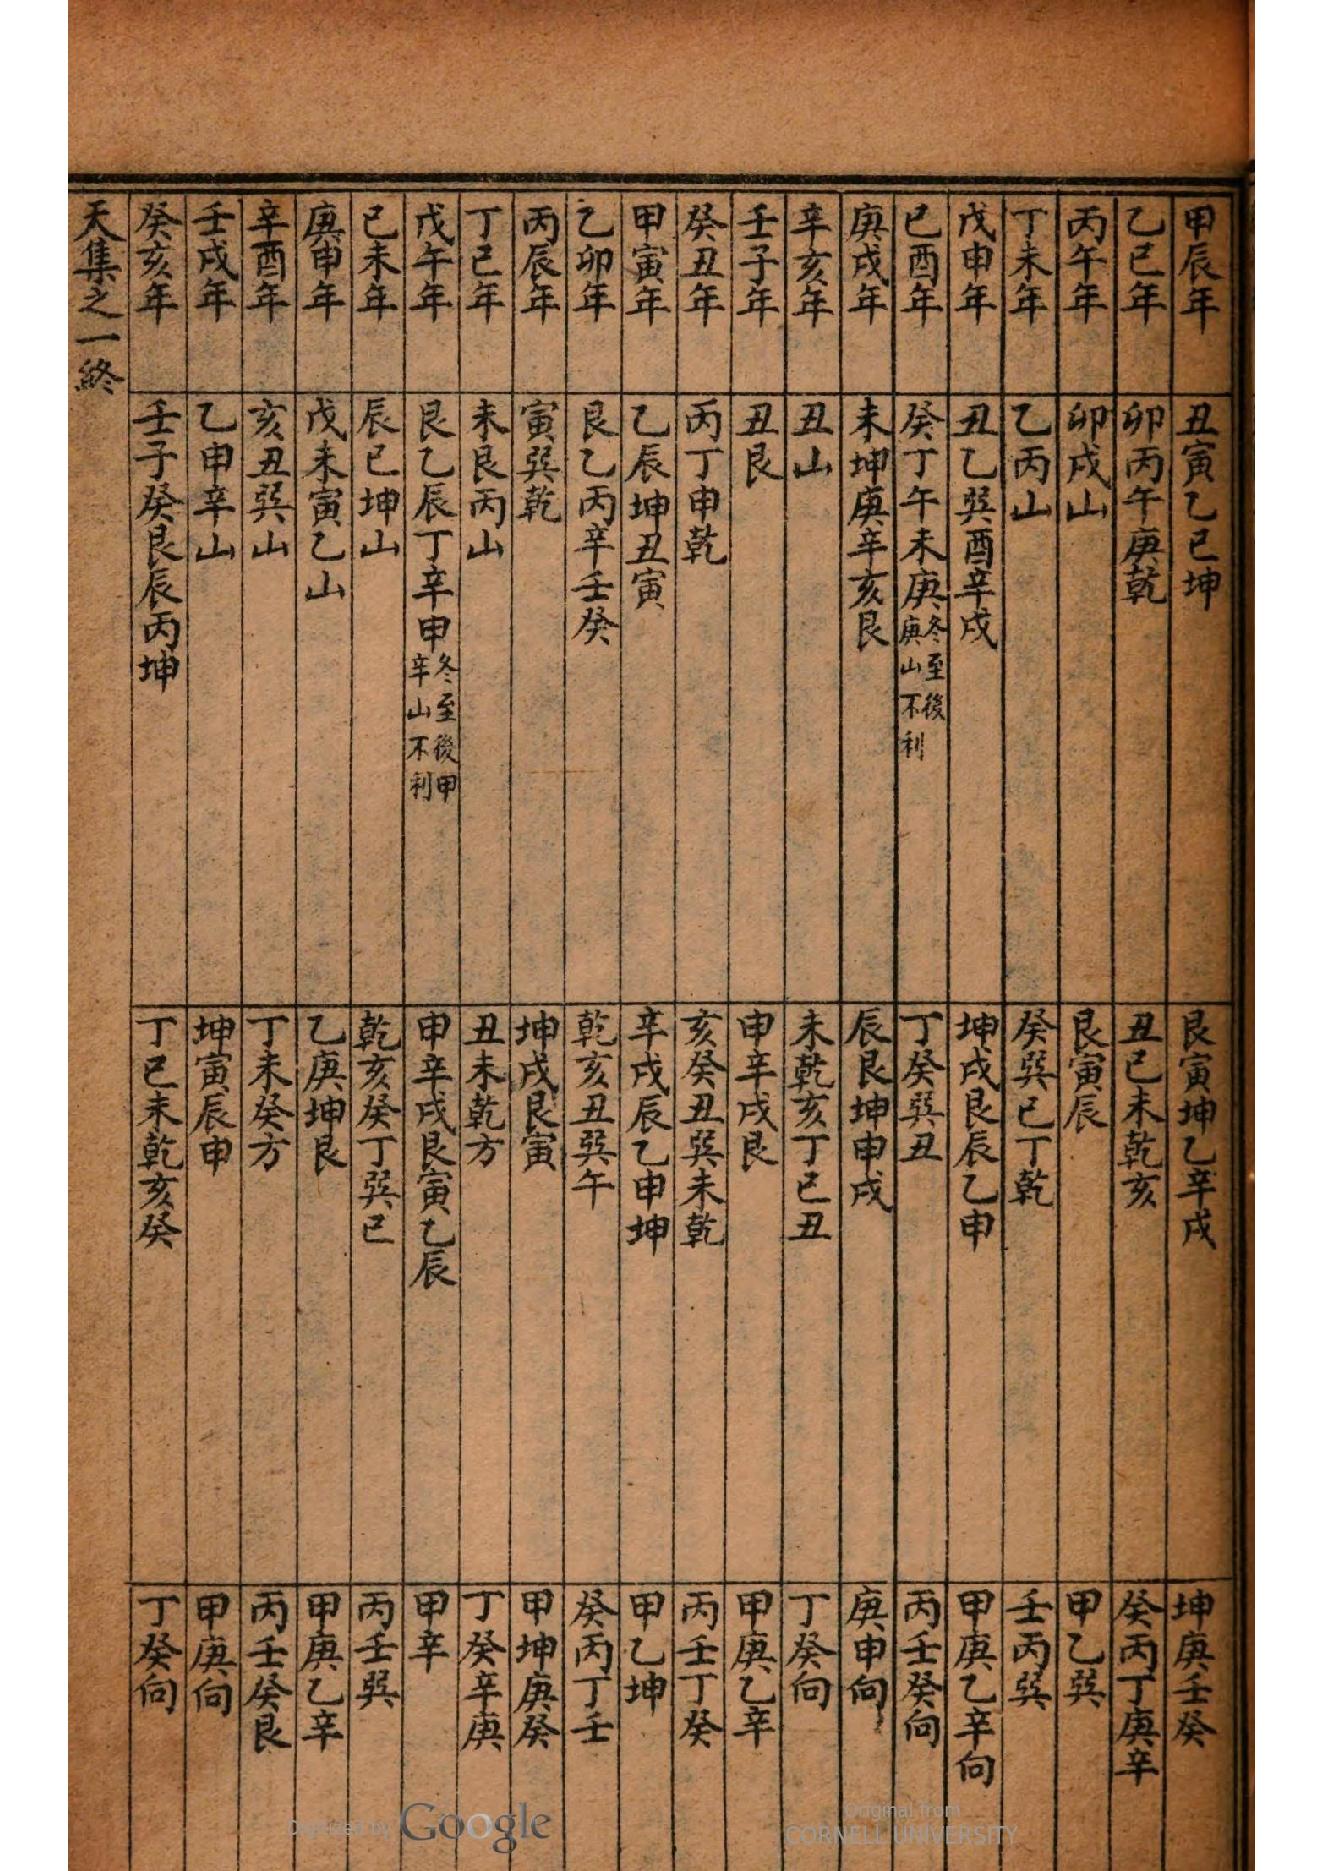 甲辰年 丑寅乙巳坤 艮寅坤乙辛戌 坤庚壬癸
乙巳年 卯丙午庚乾 丑巳未乾亥 癸丙丁庚辛
丙午年 卯戌山 艮寅辰 甲乙巽
丁未年 乙丙山 癸巽巳丁乾 壬丙巽
戊申年 丑乙巽酉辛戌 坤戌艮辰乙申 甲庚乙辛向
已酉年 癸丁午未庚冬至後庚山不利 丁癸巽丑 丙壬癸向
庚戌年 未坤庚辛亥艮 辰艮坤申戌 庚申向
辛亥年 丑山 未乾亥丁巳丑 丁癸向
壬子年 丑艮 申辛戌艮 甲庚乙辛
癸丑年 丙丁申乾 亥癸丑巽未乾 丙壬丁癸
甲寅年 乙辰坤丑寅 辛戌辰乙申坤 甲乙坤
乙卯年 艮乙丙辛壬癸 乾亥丑巽午 癸丙丁壬
丙辰年 寅巽乾 坤戌艮寅 甲坤庚癸
丁巳年 未艮丙山 丑未乾方 丁癸辛庚
戊午年 艮乙辰丁辛申冬至後甲辛山不利 申辛戌艮寅乙辰 甲辛
已未年 辰巳坤山 乾亥癸丁巽巳 丙壬巽
庚申年 戊未寅乙山 乙庚坤艮 甲庚乙辛
辛酉年 亥丑巽山 丁未癸方 丙壬癸艮
壬戌年 乙申辛山 坤寅辰申 甲庚向
癸亥年 壬子癸艮辰丙坤 丁巳未乾亥癸 丁癸向
天集之一終
Digitized by Google
Original from
CORNELL UNIVERSITY